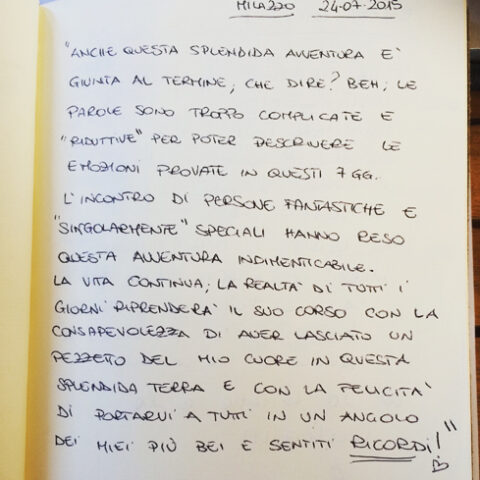 MILAZZO 24-07-2015
"ANCHE QUESTA SPLENDIDA AVVENTURA E'
GIUNTA AL TERMINE, CHE DIRE? BEH, LE
PAROLE SONO TROPPO COMPLICATE E
"RIDUTTIVE" PER POTER DESCRIVERE LE
EMOZIONI PROVATE IN QUESTI 7 GG.
L'INCONTRO DI PERSONE FANTASTICHE E
"SINGOLARMENTE" SPECIALI HANNO RESO
QUESTA AVVENTURA INDIMENTICABILE.
LA VITA CONTINUA, LA REALTA' DI TUTTI I
GIORNI RIPRENDERA' IL SUO CORSO CON LA
CONSAPEVOLEZZA DI AVER LASCIATO UN
PEZZETO DEL MIO CUORE IN QUESTA
SPLENDIDA TERRA E CON LA FELICITA'
DI PORTARVI A TUTTI IN UN ANGOLO
DEI MIEI PIÙ BEI E SENTITI RICORDI!"